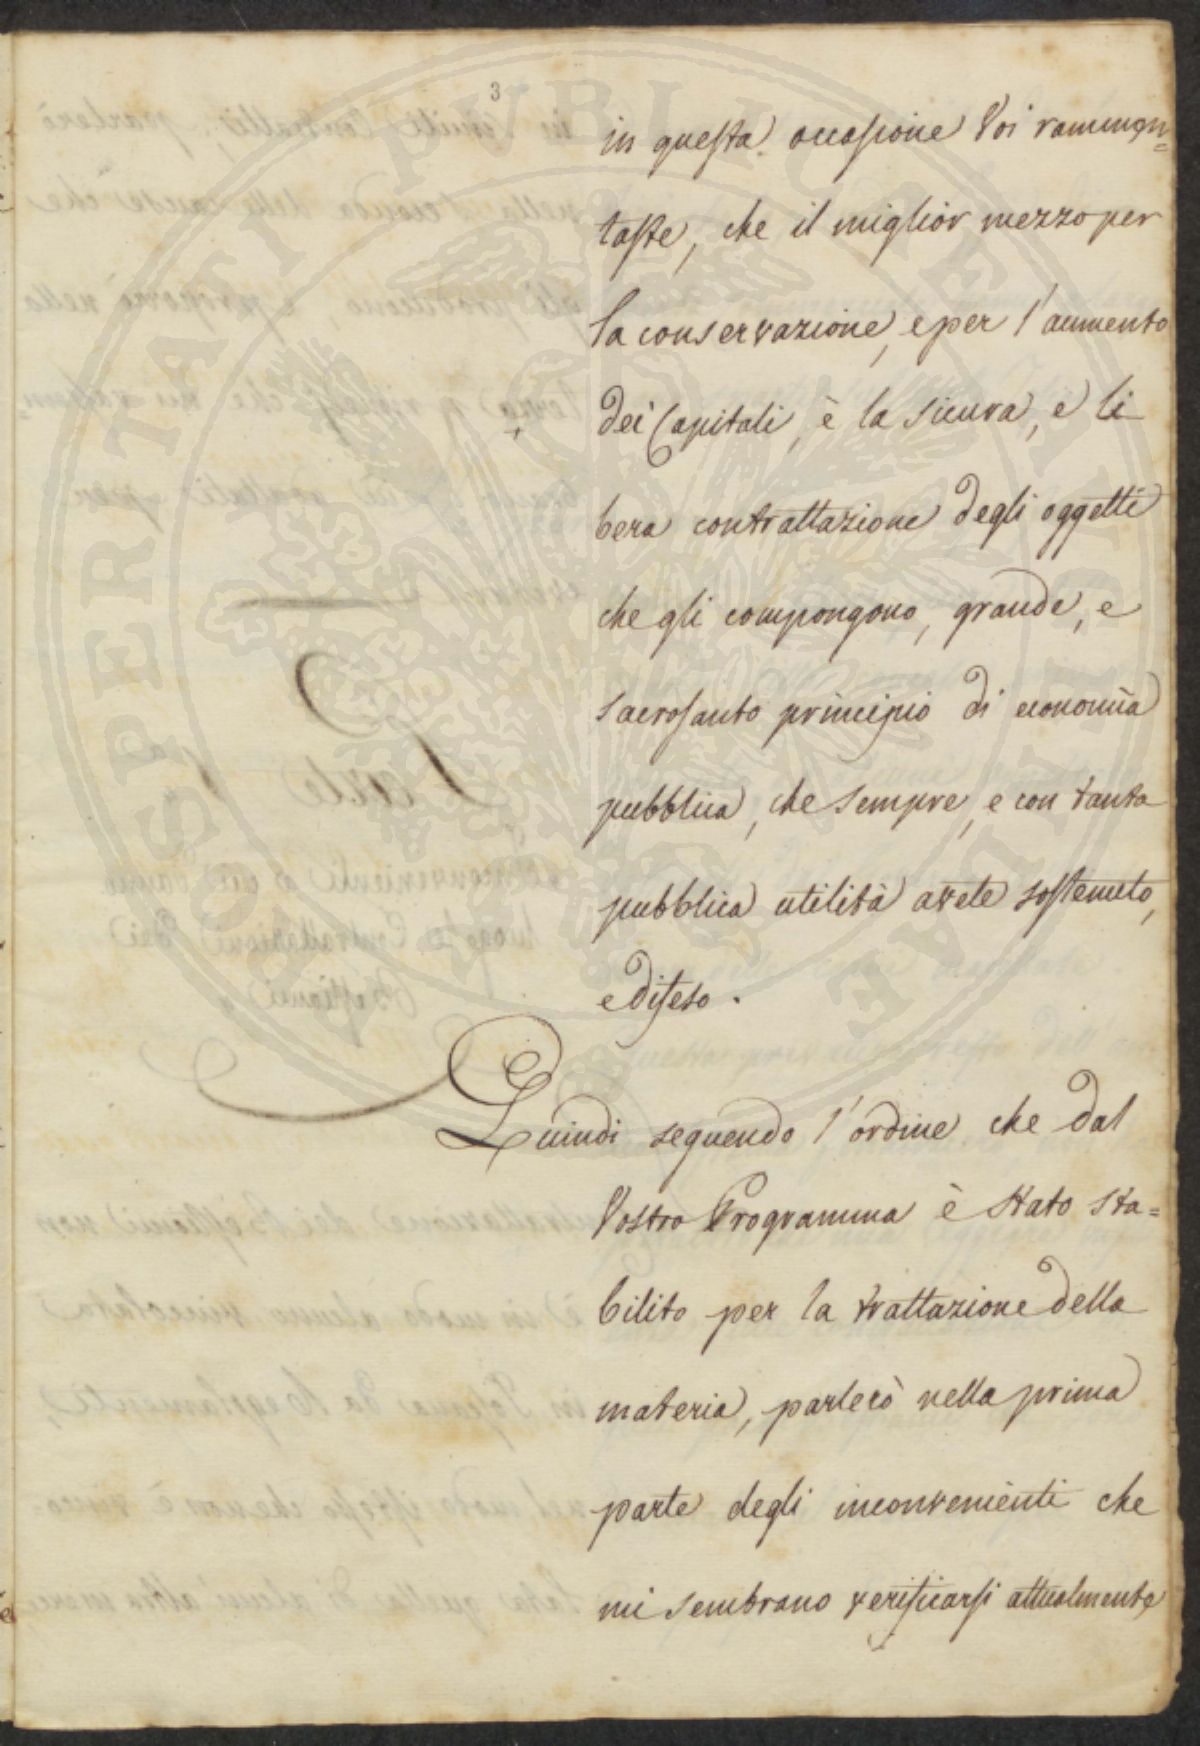 3
in questa occasione Voi rammen=
taste, che il miglior mezzo per
la conservazione, e per l'aumento
dei Capitali, è la sicura, e li
bera contrattazione degli oggetti
che gli compongono, grande, e
sacrosanto principio di economia
pubblica, che sempre, e con tanta
pubblica utilità avete sostenuto,
e difeso.
Quindi seguendo l'ordine che dal
Vostro Programma è stato sta=
bilito per la trattazione della
materia, parlerò nella prima
parte degli inconvenienti che
mi sembrano verificarsi attualmente